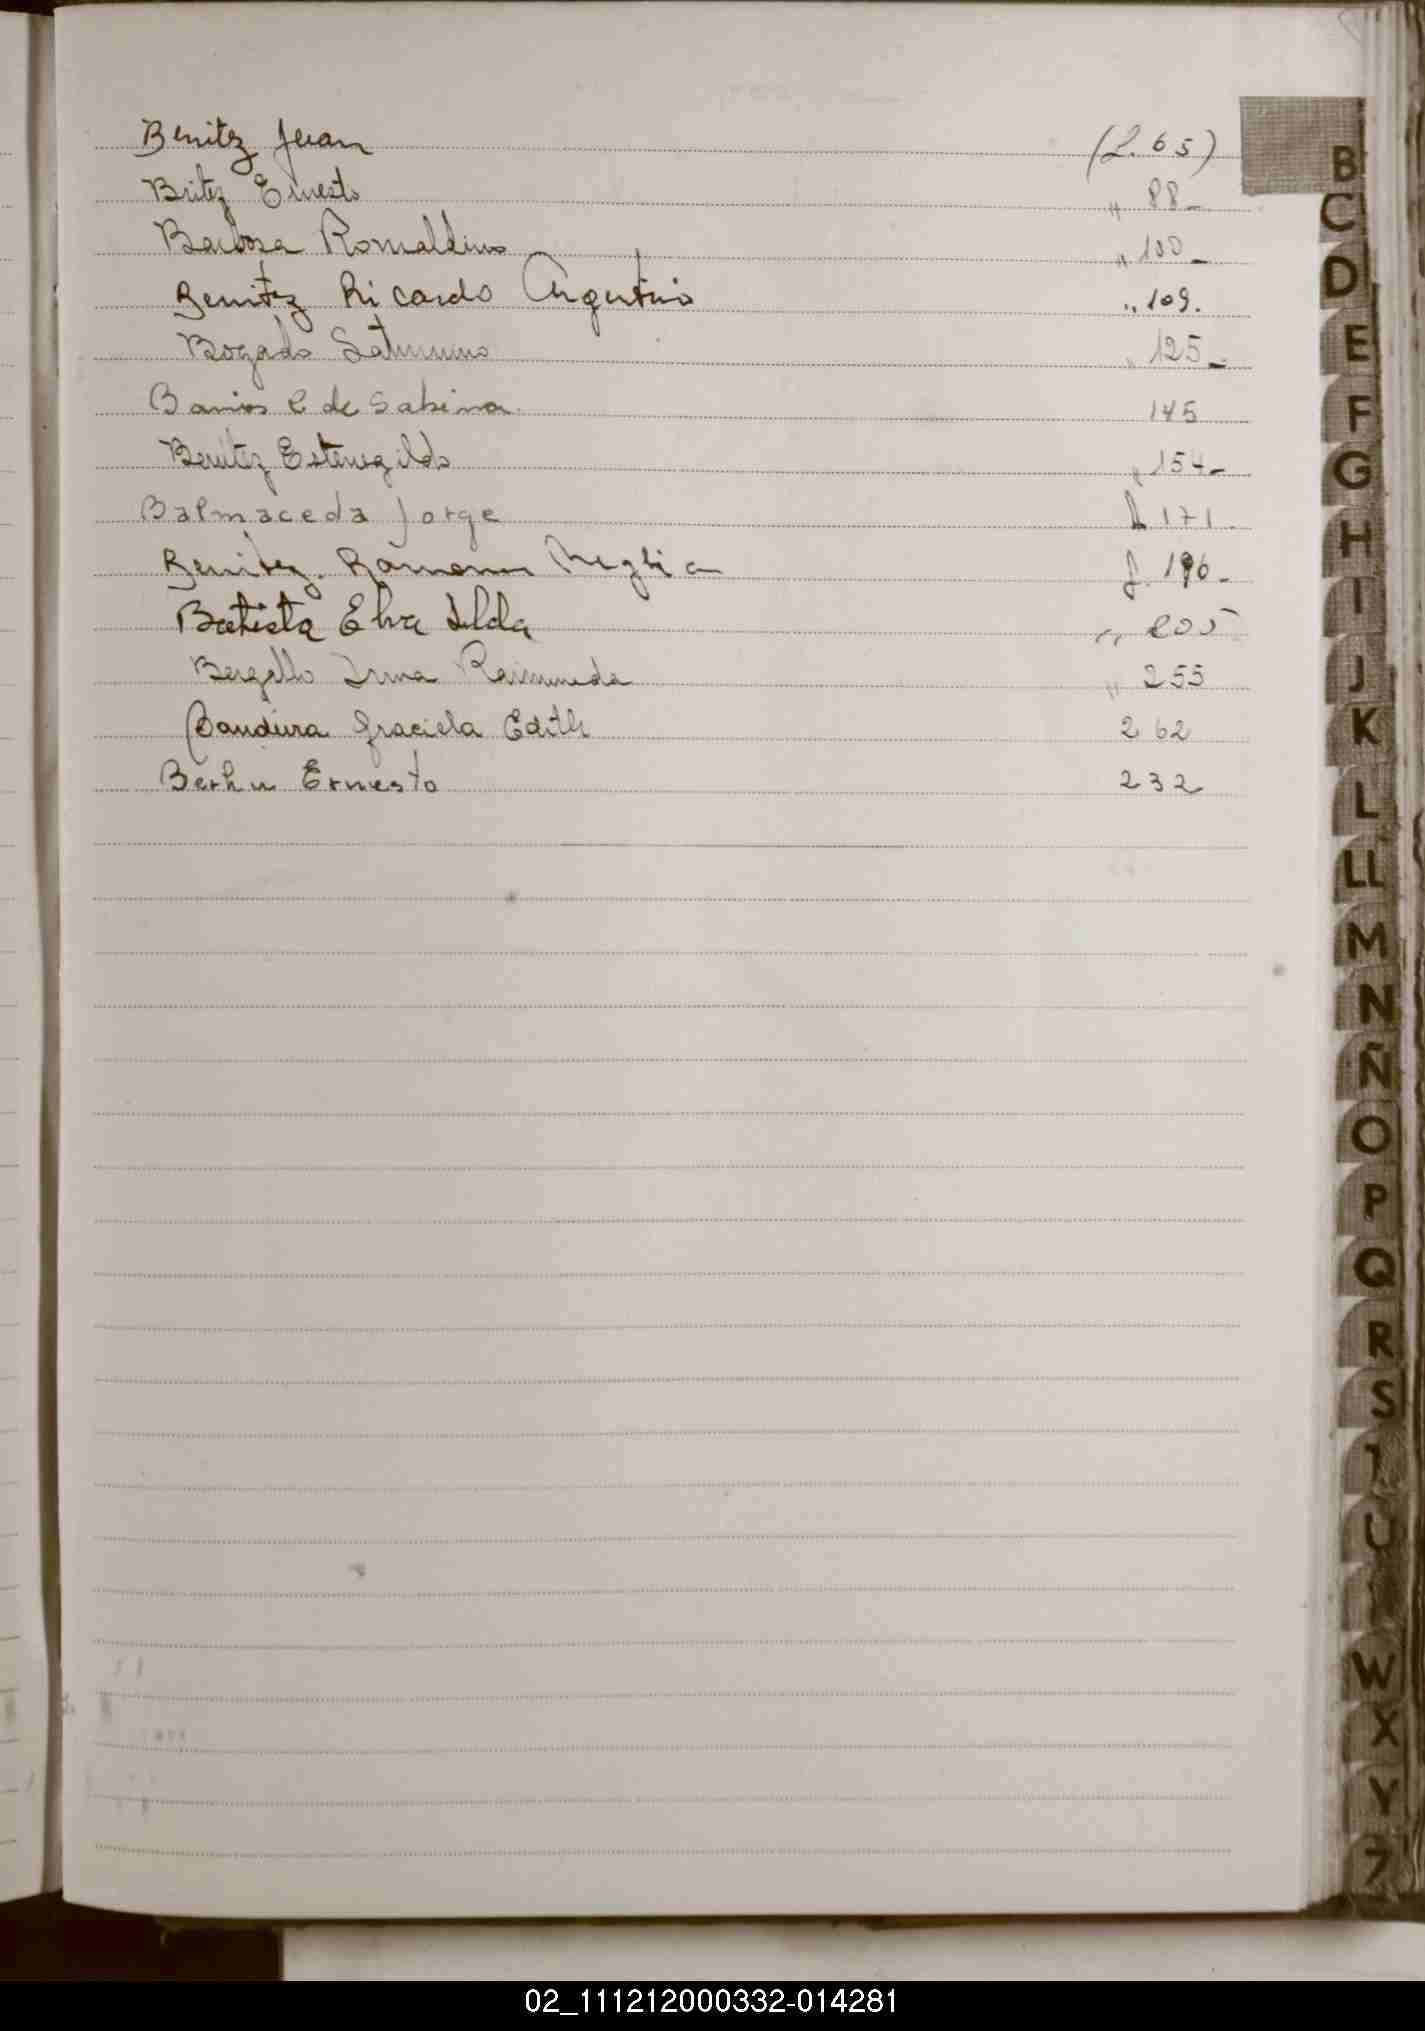 Benitez Juan (f. 65)
Britez Ernesto " 88-
Barbosa Romaldino " 100-
Benitez Ricardo Argentino " 109.
Bozado Saturnino " 125-
Barrios C de Sabina. 145
Benitez Estenegildo " 154-
Balmaceda Jorge f 171.
Benitez. Ramona f. 196-
Batista Elva Ilda " 205
Bergallo Irma Raimunda " 255
Bandiera Graciela Edith 262
Ernesto 232
B
C
D
E
F
G
H
I
J
K
L
LL
M
N
Ñ
O
P
Q
R
S
U
W
X
Y
Z
02_111212000332-014281